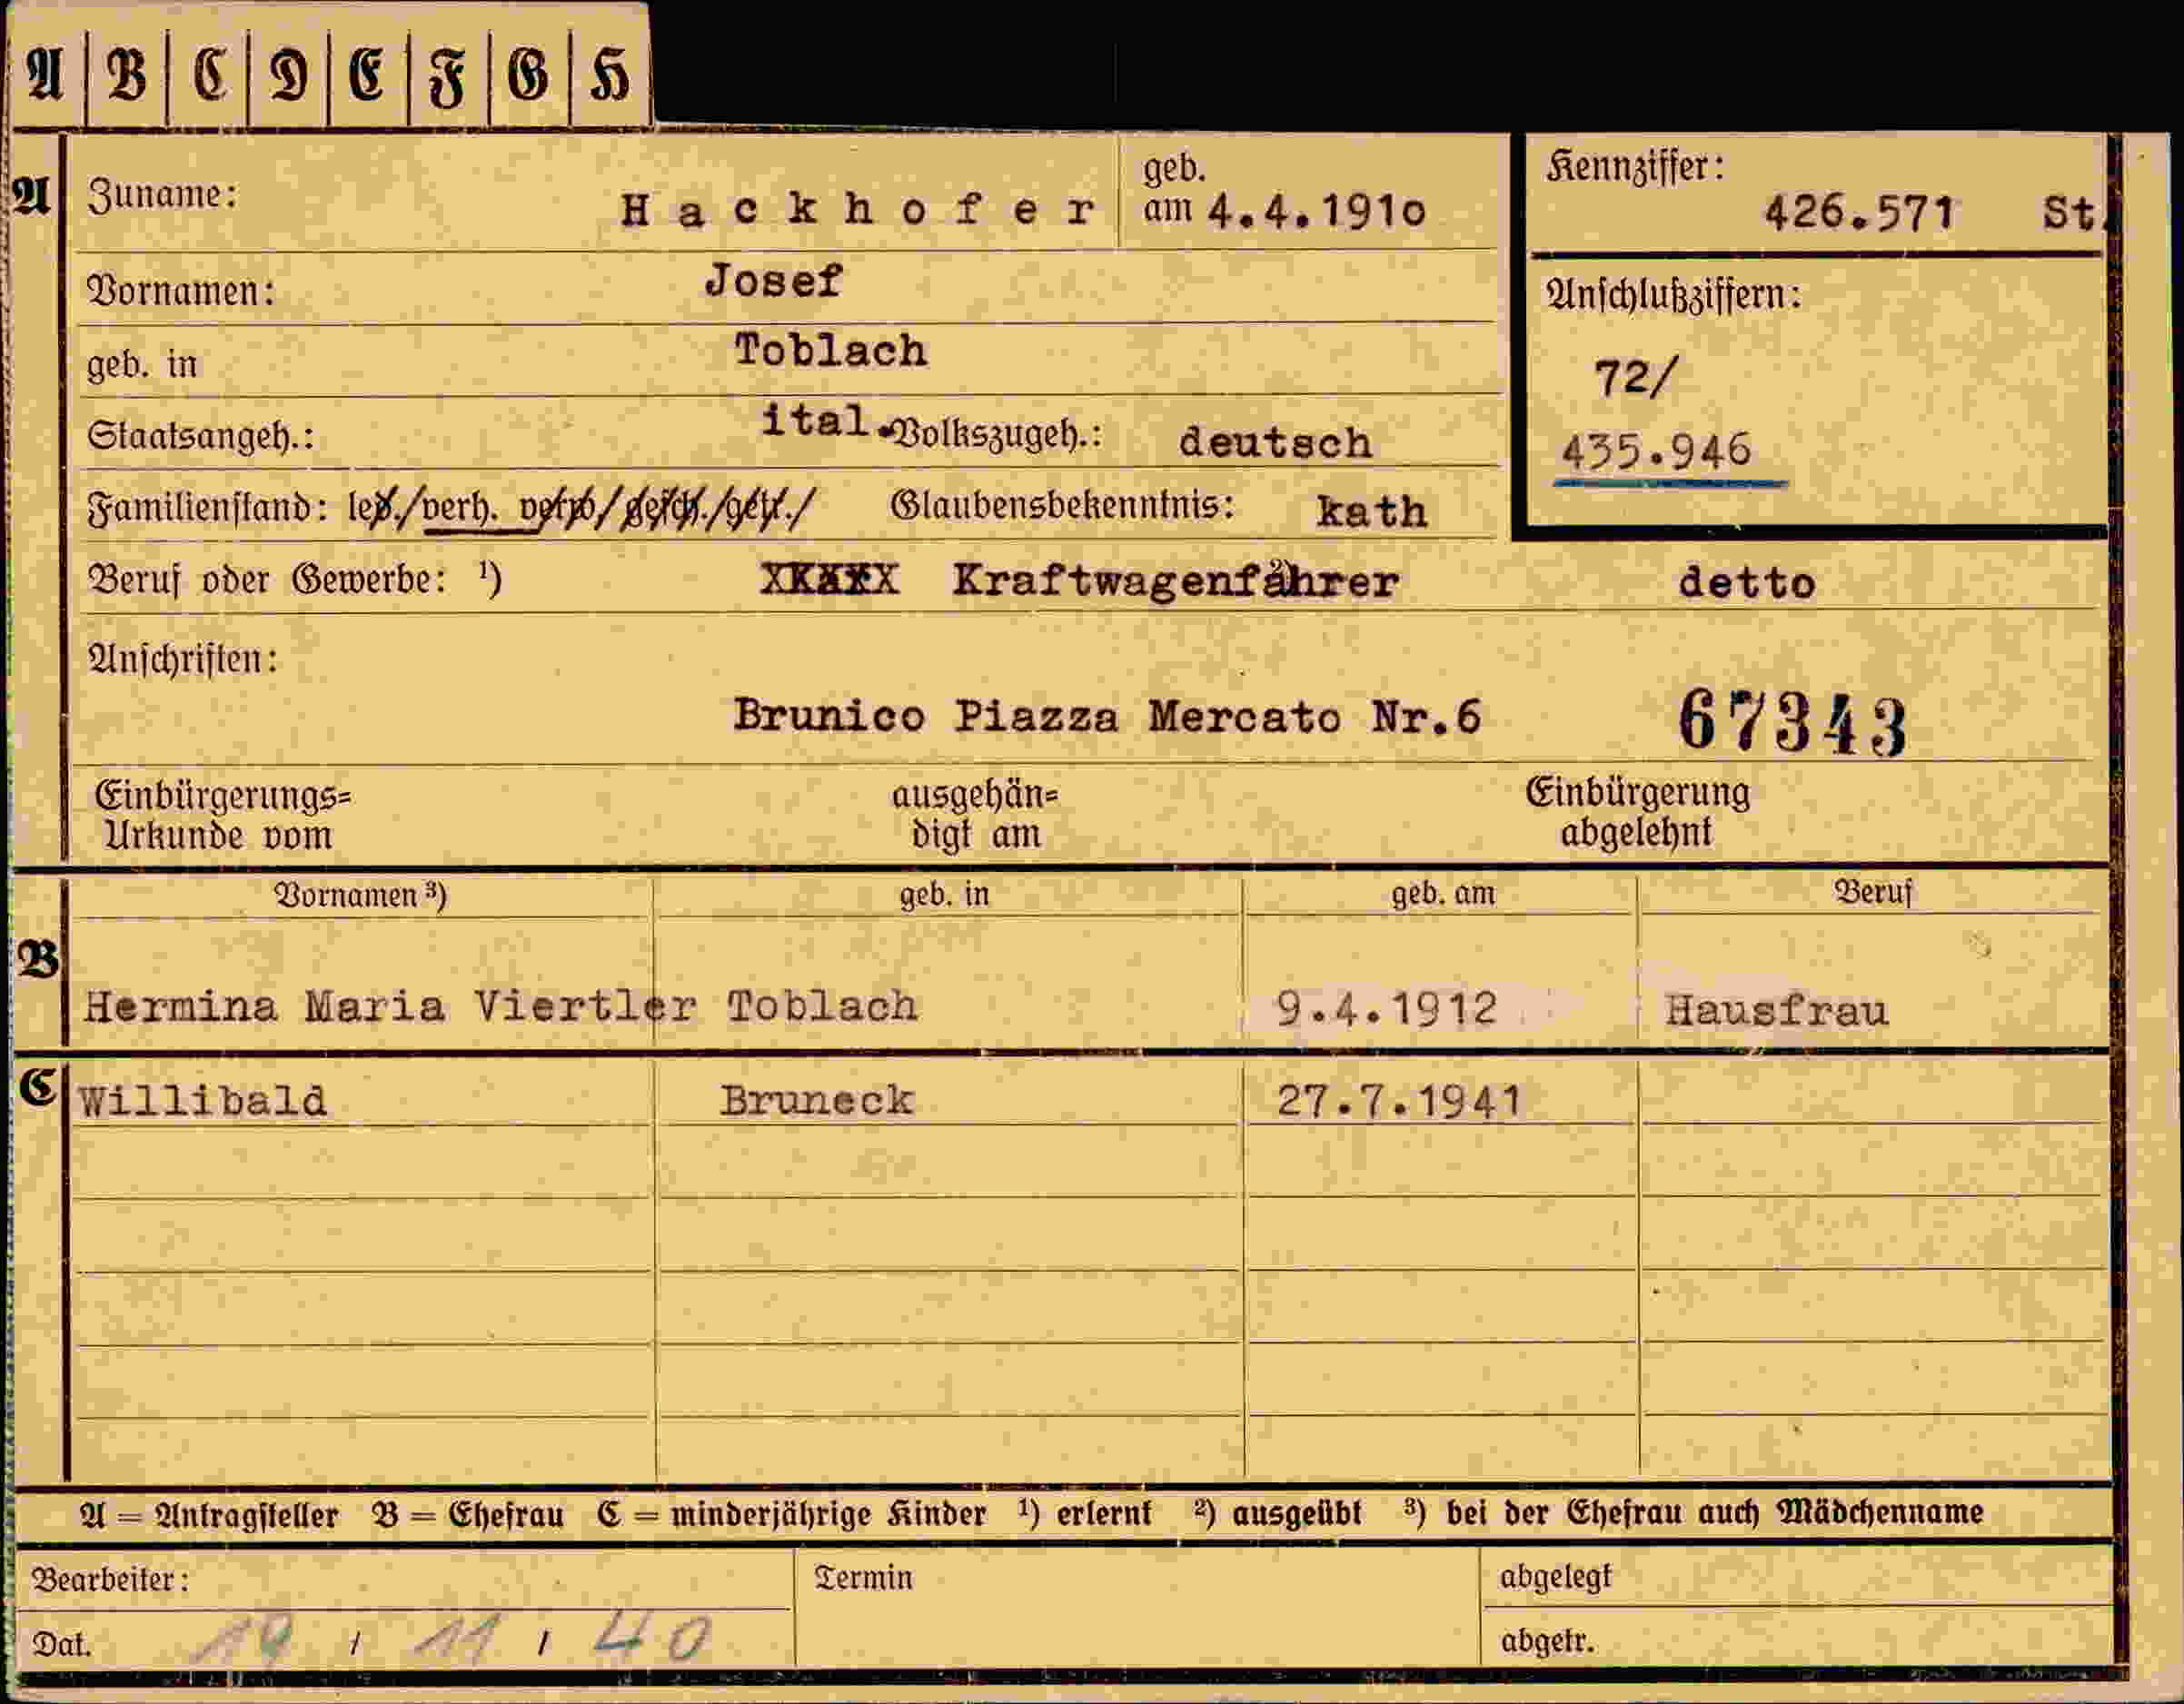 A B C D E F G H
A Zuname: Hackhofer geb. am 4.4.191o Kennziffer: 426.571 St.
Vornamen: Josef Anschlußziffern:
geb. in Toblach 72/
Staatsangeh.: ital. Volkszugeh.: deutsch 435.946
Familienstand: led./verh. verw/gesch./getr./ Glaubensbekenntnis: kath
Beruf oder Gewerbe: ¹) Kraftwagenfahrer detto
Anschriften:
Brunico Piazza Mercato Nr.6 67343
Einbürgerungs= ausgehän= Einbürgerung
Urkunde vom digt am abgelehnt
Vornamen ³) geb. in geb. am Beruf
B
Hermina Maria Viertler Toblach 9.4.1912 Hausfrau
C Willibald Bruneck 27.7.1941
A = Antragsteller B = Ehefrau C = minderjährige Kinder ¹) erlernt ²) ausgeübt ³) bei der Ehefrau auch Mädchenname
Bearbeiter: Termin abgelegt
Dat. 19 / 11 / 40 abgetr.